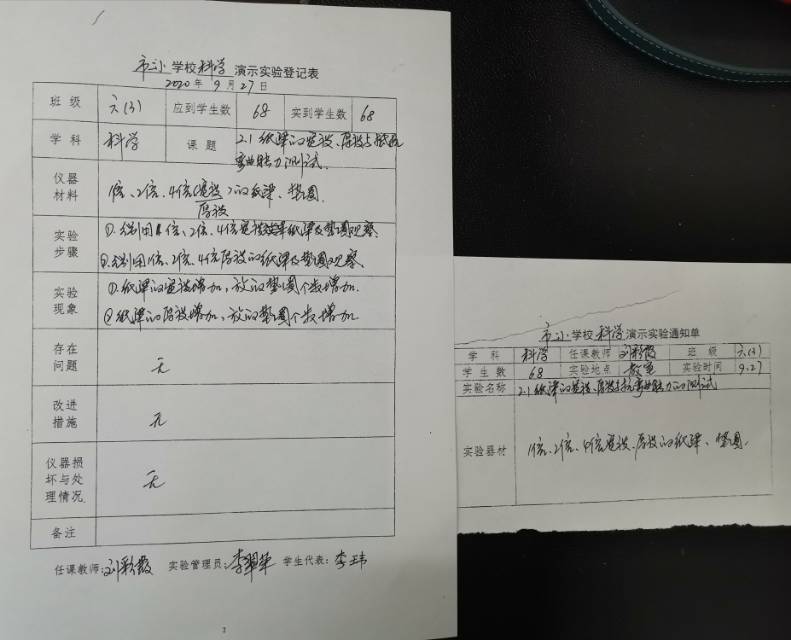 市小学校科学演示实验登记表
2020年9月27日
班级 六(3) 应到学生数 68 实到学生数 68
学科 科学 课题 2.1纸梁的宽度、厚度与抗
弯曲能力测试.
仪器
材料
1倍、2倍、4倍(宽度)的纸梁、垫圈.
厚度
实验
步骤
①.分别用1倍、2倍、4倍宽度纸梁及垫圈观察.
②.分别用1倍、2倍、4倍厚度的纸梁及垫圈观察.
实验
现象
①.纸梁的宽度增加,放的垫圈个数增加.
②纸梁的厚度增加,放的垫圈个数增加
存在
问题
无
改进
措施
无
仪器损
坏与处
理情况
无
备注
任课教师:刘彩霞 实验管理员:李翠华 学生代表:李玮
3
市小学校科学演示实验通知单
学科 科学 任课教师 刘彩霞 班级 六(3)
学生数 68 实验地点 教室 实验时间 9.27
实验名称 2.1纸梁的宽度、厚度与抗弯曲能力的测试
实验器材 1倍、2倍、4倍宽度、厚度的纸梁、垫圈.